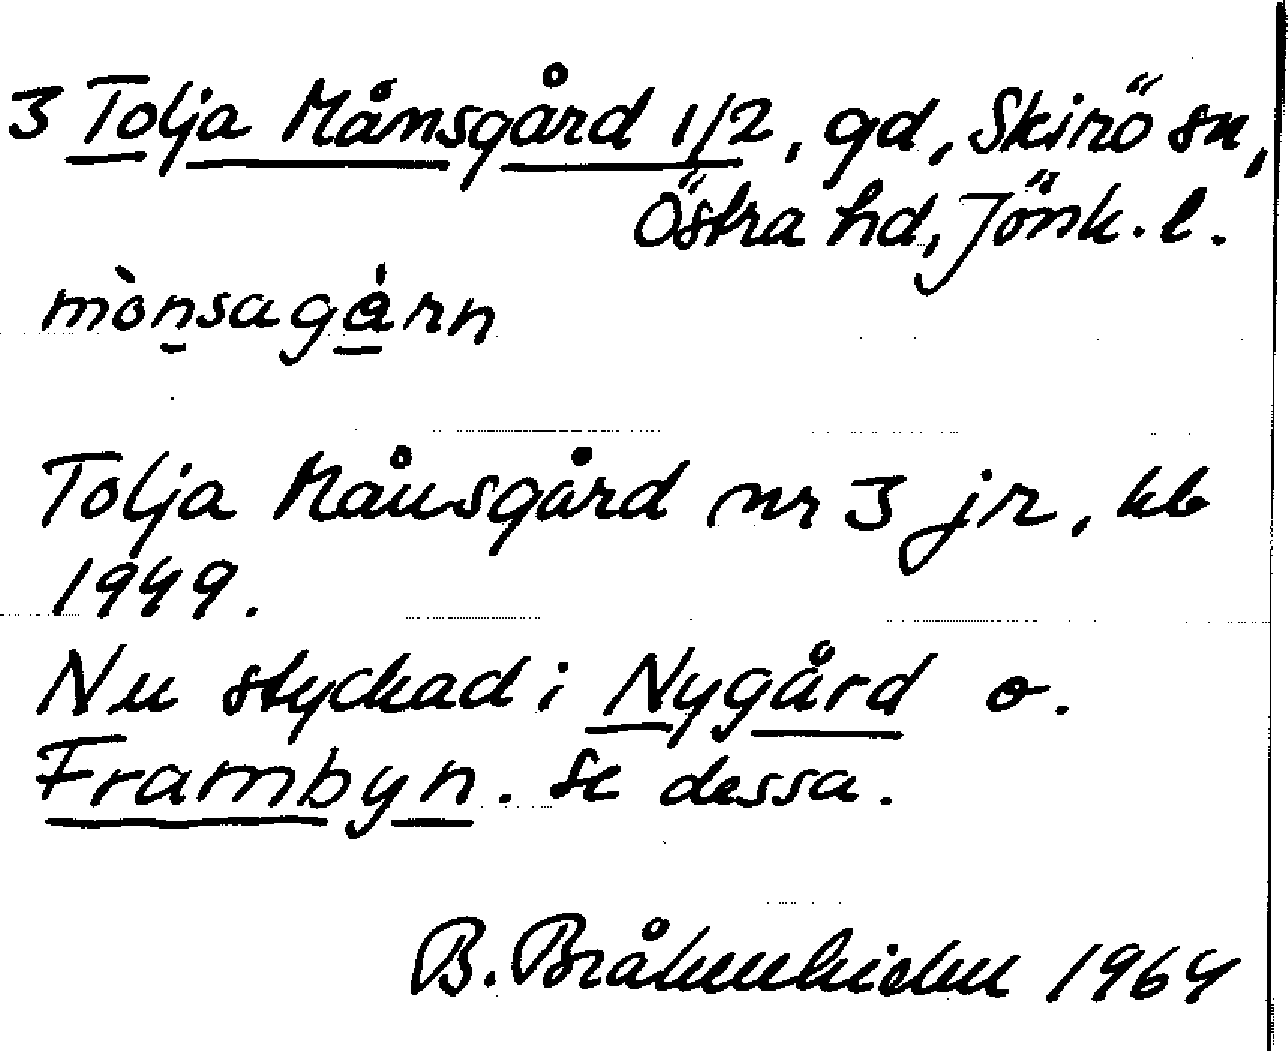 3 Tolja Månsgård 1/2, gd, Skirö sn,
Östra hd, Jönk. l.
mònsagárn
Tolja Månsgård nr 3 jr, kb
1949.
Nu styckad i Nygård o.
Frambyn. Se dessa.
B. 1964